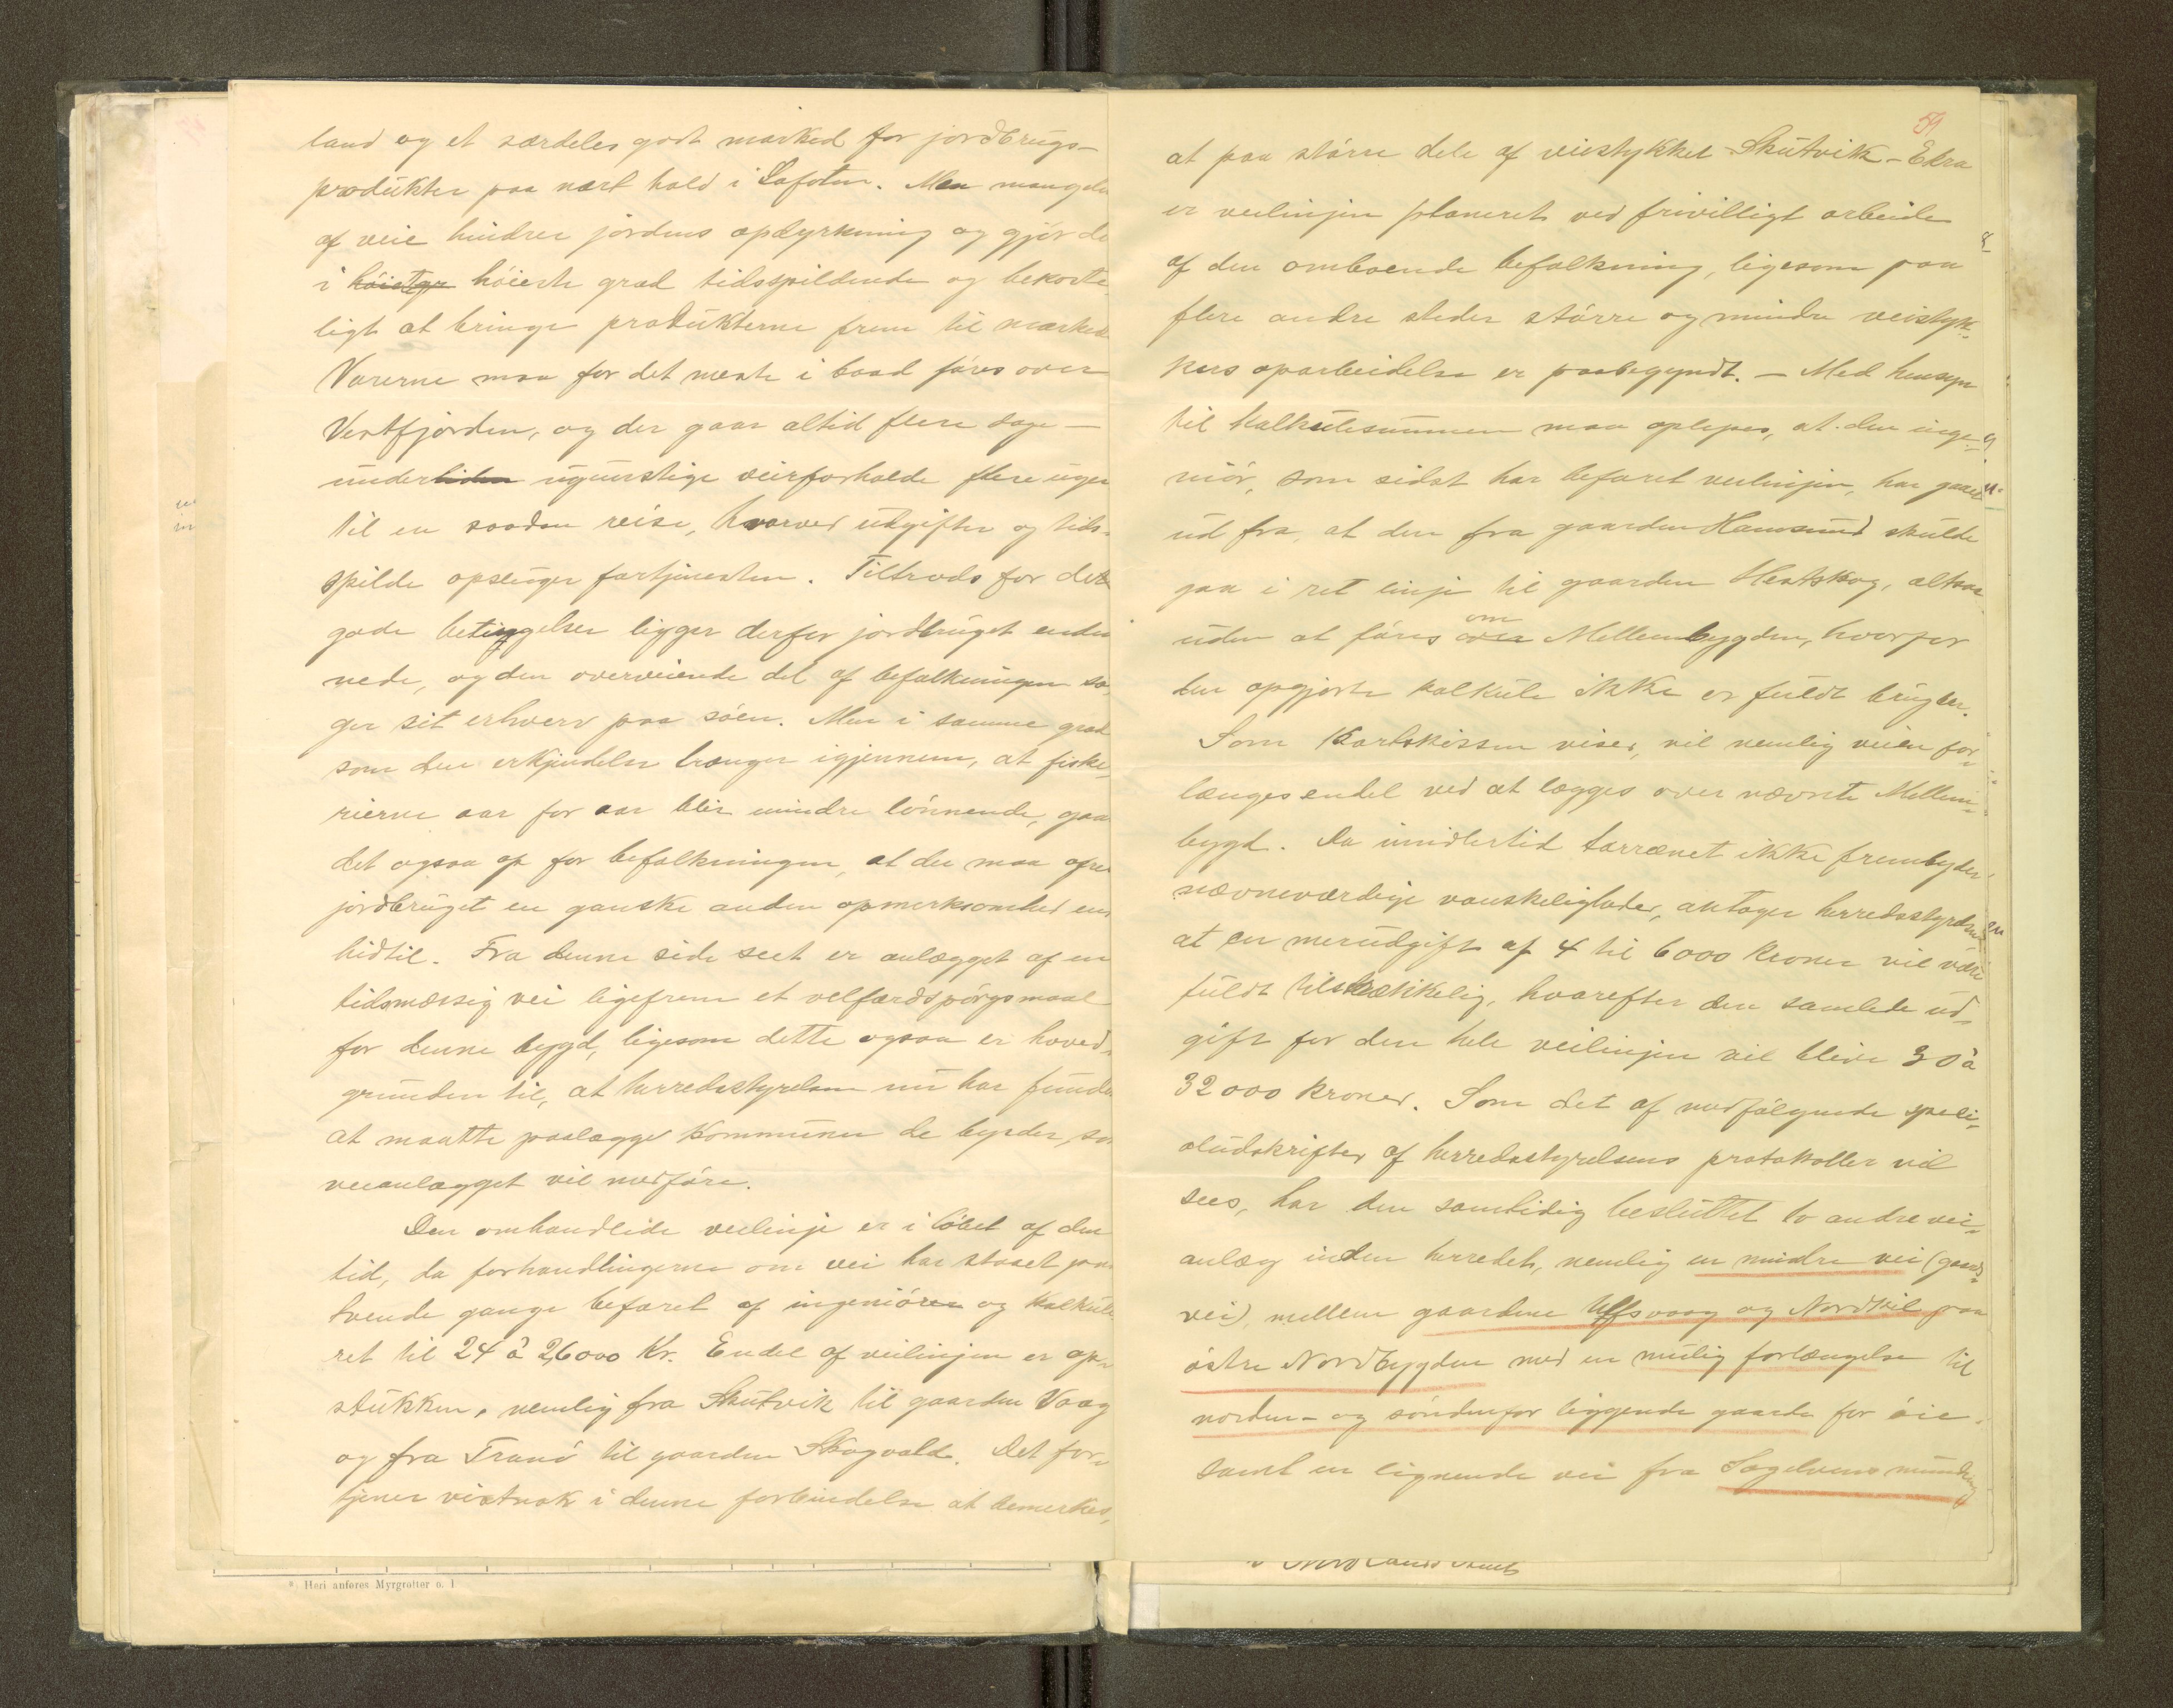 land og et særdeles godt marked for jordbrugs-
produkter paa nært hold i Lofoten. Men mangelen
af veie hindrer jordens opdyrkning og gjør de
i høieste grad tidsspildende og bekoste-
ligt at bringe produkterne frem til marked
Varerne maa for det meste i baad føres over
Vestfjorden, og der gaar altid flere dage -
under ugunstige veirforholde flere uger
til en saadan reise, hvorved utgifter og tids-
spilde opsluger fortjenesten. Tiltrods for de
gode betingelser ligger derfor jordbruget endnu
nede, og den overveiende del af befolkningen sø-
ger sit erhverv paa søen. Men i samme grad
som den erkjendelse trænger igjennem, at fiske-
rierne aar for aar blir mindre lønnende, gaar
det ogsaa op for befolkningen, at der maa ofres
jordbruget en ganske anden opmerksomhed end
hidtil. Fra denne side seet er anlægget af en
tidsmæssig vei ligefrem et velfærdspørgsmaal
for denne bygd, ligesom dette ogsaa er hoved-
grunden til, at herredsstyrelsen nu har funde
at maatte paalægge kommunen de byrder, som
veianlægget vil medføre.
Den omhandlede veilinje er i løbet af den
tid, da forhandlingerne om vei har staaet paa
tvende gange befaret af ingeniører og kalkule-
ret til 24 à 26000 Kr. Endel af veilinjen er op-
stukken, nemlig fra Skutvik til gaarden Vaag
og fra Tranö til gaarden Skogvold. Det for-
tjener vistnok i denne forbindelse at bemerkes,
59
at paa større dele af veistykket Skutvik - Ekra
er veilinjen planeret ved frivilligt arbeide
af den omboende befolkning, ligesom paa
flere andre steder større og mindre veistyk-
kers oparbeidelse er paabegyndt. - Med hensyn
til kalkulesummen maa oplyses, at den inge-
niør, som sidst har befaret veilinjen, har gaaet
ud fra, at den fra gaarden Hamsund skulde
gaa i ret linje til gaarden Hestskog, altsaa
uden at føres om Mellembygden, hvorfor
den opgjorte kalkule ikke er fuldt brugbar.
Som Kartskissen viser, vil nemlig veien for-
længes endel ved at lægges over nævnte Mellem-
bygd. Da imidlertid terrænet ikke frembyder
nævneværdige vanskeligheder, antager herredsstyrelsen
at en merudgift af 4 til 6000 kroner vil være
fuldt tilstrækkelig, hvorefter den samlede ud-
gift for den hele veilinjen vil blive 30 à
32000 kroner. Som det af medfølgende speci-
aludskrifter af herredsstyrelsens protokoller vil
sees, har den samtidig besluttet to andre vei-
anlæg inden herredet, nemlig en mindre vei (gaards-
vei), mellem gaardene Ulfsvaag og Nordkil paa
østre Nordbygden med en mulig forlængelse til
norden- og søndenfor liggende gaarde for øie.
samt en lignende vei fra Sagelvens munding
* Heri anføres Myrgrøfter o. l